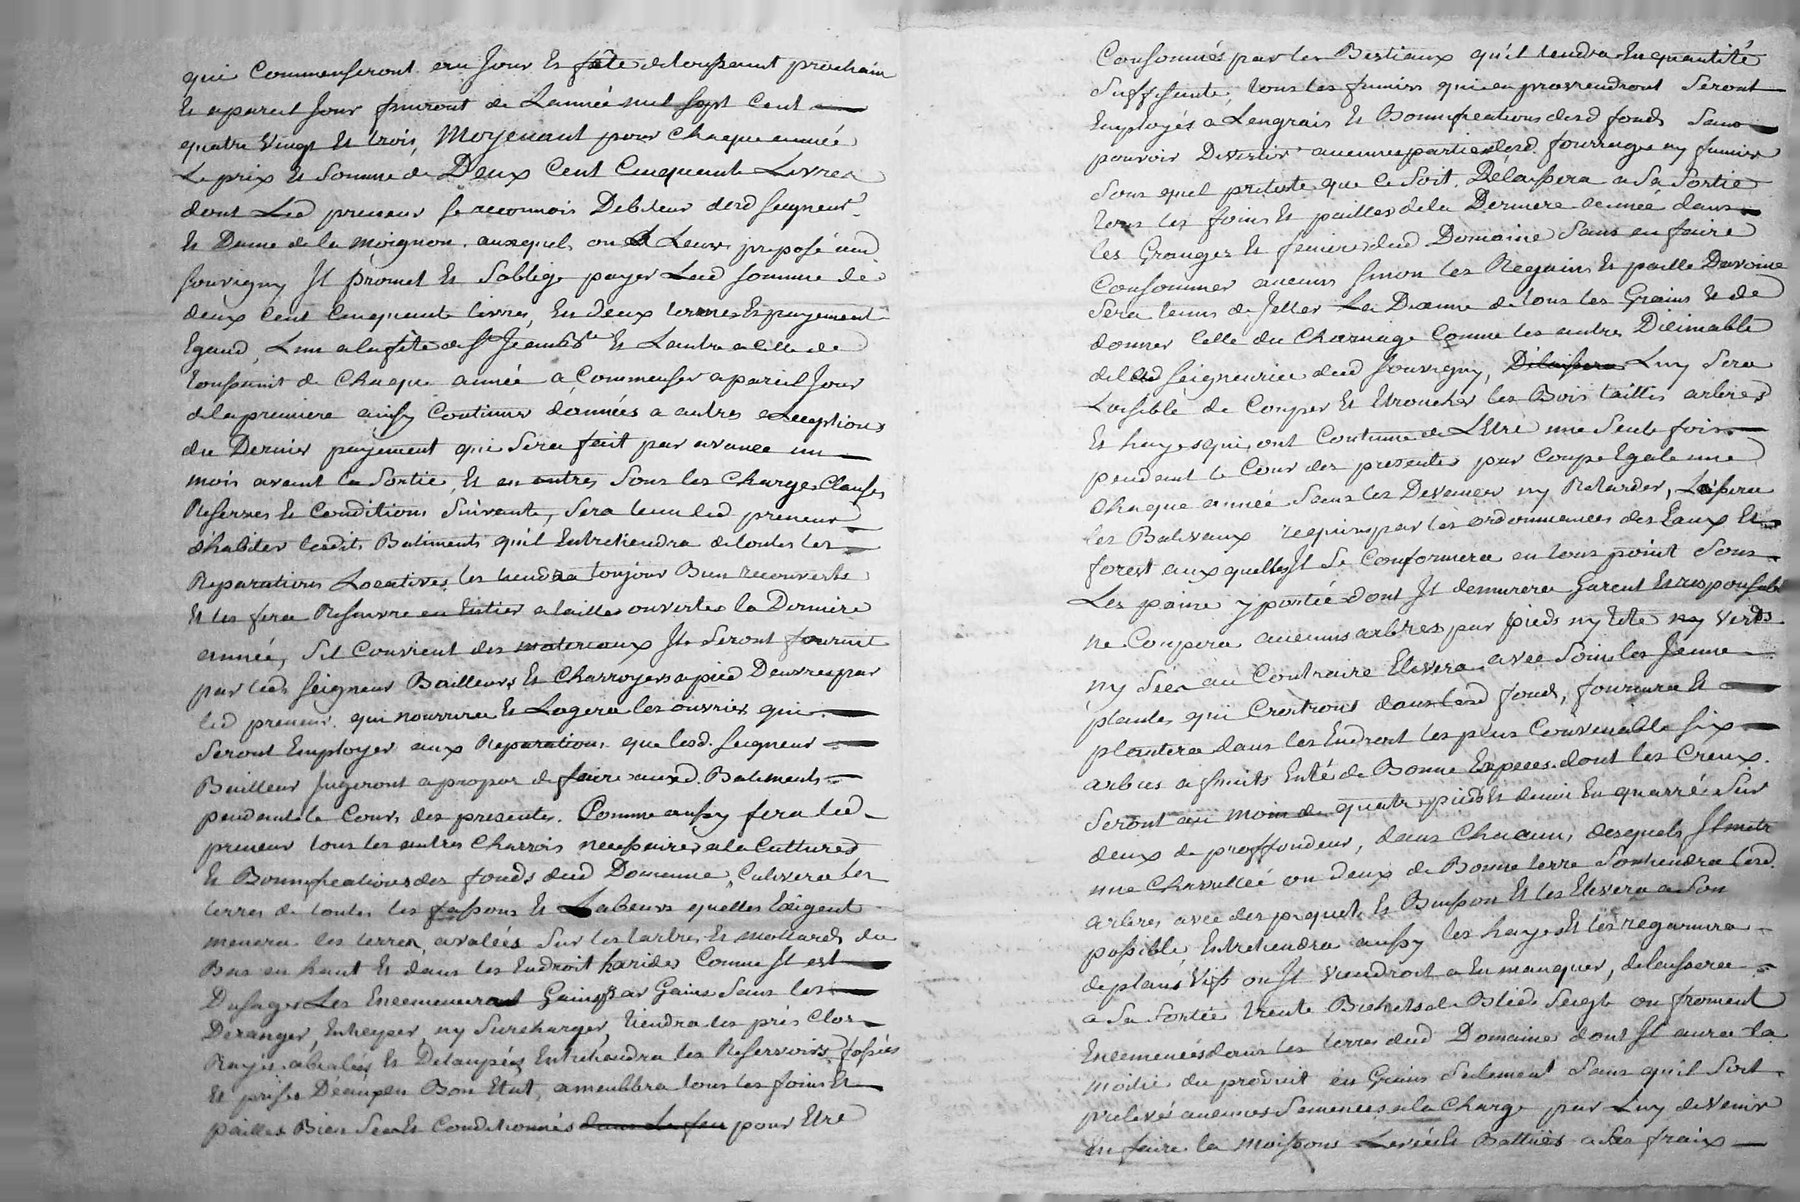 qui Commenseront eru Jour Et fête de toussaint prochain
Et apareil Jour finiront de Lannée mil sept Cent
quatre Vingt Et trois, Moyenant pour Chaque année
Le prix Et Somme de Deux Cent Cinquante Livres
dont Led preneur se reconnois Debiteur desd seigneur
Et Dame de la moignon, auxquels ou a Leurs preposé aud
souvigny Il promet Et Soblige payer Lad somme de
deux Cent Cinquante livres En deux termes Et payement
Egaud, Lun a la fête de St Jean Bte Et Lautre a Celle de
toussaint de Chaque année a Commenser apareil Jour
de la premiere ainsy Continuer dannées a autres a Lexception
du Dernier payement qui Sera fait par avance un
mois avant la Sortie, Et en outres Sous les Charges Clauses
Reserves Et Conditions Suivante, Sera tenu led preneur
dhabiter lesdits Batiments quil Entretiendra de toutes les
Reparations Locatives, les tiendra toujour Bien recouverts
Et les fera Resuivre en Entier a tailles ouvertes la Derniere
année, Sil Convient des materiaux Ils Seront fournit
par lesd Seigneur Bailleurs Et Charroyers a pied Dœuvres par
led preneur qui nourrira Et Logera les ouvriers qui
Seront Employer aux Reparations que lesd. Seigneur
Bailleur Jugeront apropos de faire auxd. Batiments
pendant le Cours des presentes. Comme aussy fera led
preneur tous les autres Charrois necessaires a la Cultures
Et Bonnifications des fonds dud Domaine, Cultivera les
terres de toutes les fassons Et Labeurs quelles Exigent
menera les terres avalées Sur les tartres Et mottards du
Bas en haut Et dans les Endroit harides Comme Il est
Dusages Les Encemencera Gains par Gains Sans les
Deranger, ny Surcharger, tiendra les prés Clos
Rayés abialés Et Detaupés Entretiendra les Reservoirs, fossées
Et prises Deaux en Bon Etat, ameublira tous les foins Et
pailles Bien Secs Et Conditionnés dans le feu pour Etre
Consommés par les Bestiaux qu'il tendra En quantité
Suffisante, tous les fumiers qui en proviendront Seront
Employés a Lengrais Et Bonnifications desd fonds Sans
pouvoir Divertir aucunes parties desd. fourrages ny fumier
Sous quel pretexte que ce Soit. Délaissera a Sa Sortie
tous les foins Et pailles de la Derniere année dans
les Granges Et feniers dud Domaine Sans en faire
Consommer aucuns Sinon les Regains Et paille Davoine
Sera tenus de Jetter La Dixme de tous les Grains Et de
donner Celle du Charnage Comme les autres Diximable
de lad Seigneurie dud Souvigny, Delaissera Luy Sera
Loisible de Couper Et Etroncher les Bois taillis arbres
Et hayes qui ont Coutume de LEtre une Seule fois
pendant le Cour des presentes par Coupe Egale une
Chaque année Sans les Devancer ny Retarder, Laissera
les Baliveaux requis par les ordonnances des Eaux Et
forest auxquelles Il Se Conformera en tous point Sous
Les paine y portée dont Il demurera Garent Et responsable
ne Coupera aucuns arbres par pieds ny tete ny Verds
ny Secs au Contraire Elevera avec Soin les Jeune
plantes qui Croitront dans lesd fonds, fournira Et
plantera dans les Endroit les plus Convenable Six
arbres a fruits Enté de Bonne Especes dont les Creux
Seront au moin de quatre pieds Et demi En quarrés Sur
deux de proffondeur, dans Chacuns desquels Il metr
une Charrettée ou deux de Bonne terre Soutiendra lesd.
arbres avec des piquet Et Buisson Et les Elevera a Son
possible, Entretiendra aussy les hayes Et les regarnira
de plans Vifs ou Il Viendroit a En manquer, delaissera
a Sa Sortie trente Bichets de Bled Seigle ou froment
Encemencés dans les terres dud Domaine dont Il aura la
moitié du produit en Grains Seulement Sans qu'il Soit
prelevé aucunes Semences a la Charge par Luy de Venir
En faire la moissons Levée Et Battues a Ses fraix